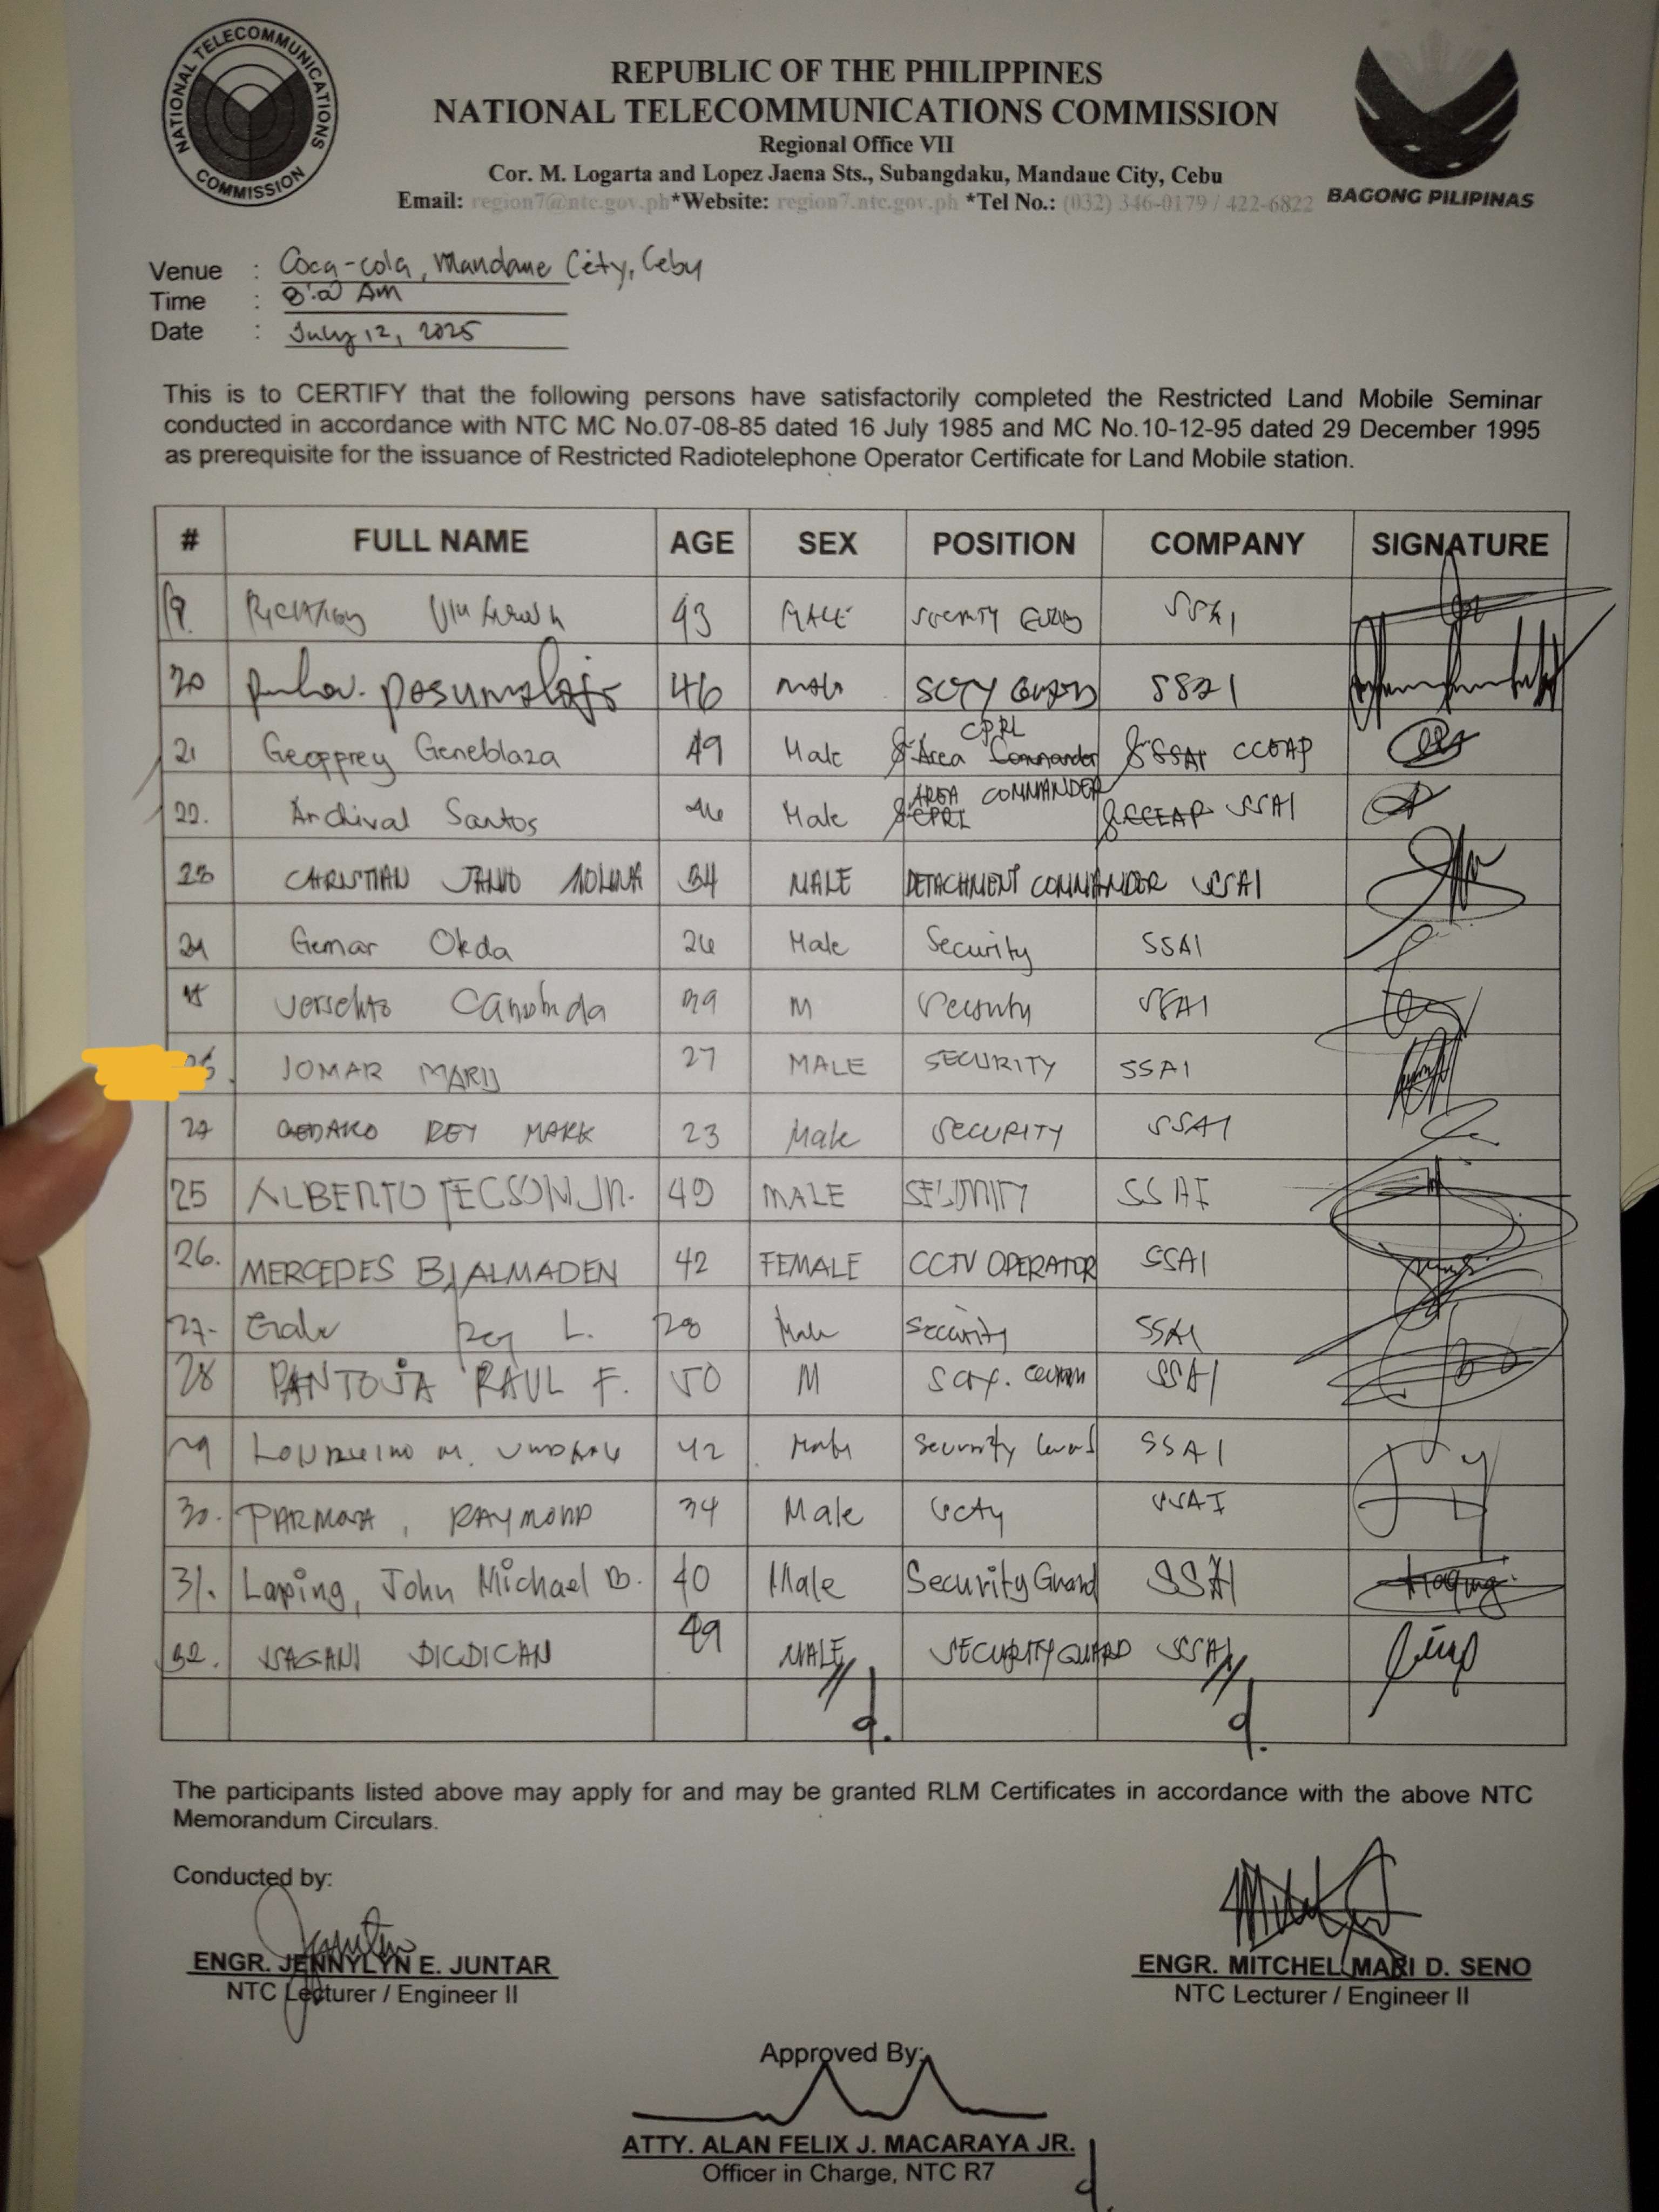 NATIONAL TELECOMMUNICATIONS COMMISSION
REPUBLIC OF THE PHILIPPINES
NATIONAL TELECOMMUNICATIONS COMMISSION
Regional Office VII
Cor. M. Logarta and Lopez Jaena Sts., Subangdaku, Mandaue City, Cebu
Email: region7@ntc.gov.ph*Website: region7.ntc.gov.ph *Tel No.: (032) 346-0179 / 422-6822
BAGONG PILIPINAS
Venue : Coca-cola, Mandaue City, Cebu
Time : 8:00 AM
Date : July 12, 2025
This is to CERTIFY that the following persons have satisfactorily completed the Restricted Land Mobile Seminar
conducted in accordance with NTC MC No.07-08-85 dated 16 July 1985 and MC No.10-12-95 dated 29 December 1995
as prerequisite for the issuance of Restricted Radiotelephone Operator Certificate for Land Mobile station.
# FULL NAME AGE SEX POSITION COMPANY SIGNATURE
19 43 MALE SECURITY GUARD SSAI
20 46 Male SCTY GUARD SSAI
21 Geoffrey Geneblaza 49 Male Area Commander CPRL SSAI CCEAP
22. Archival Santos Male CPRL AREA COMMANDER CCEAP SSAI
23 CHRISTIAN MOLINA 34 MALE DETACHMENT COMMANDER SSAI
24 Gemar Okda 26 Male Security SSAI
39 M Security SSAI
26. JOMAR 27 MALE SECURITY SSAI
27 REY MARK 23 Male SECURITY SSAI
25 ALBERTO TECSON JR. 49 MALE SECURITY SSAI
26. MERCEDES B. ALMADEN 42 FEMALE CCTV OPERATOR SSAI
27. Rey L. 28 Male Security SSAI
28 PANTOJA RAUL F. 50 M SSAI
29 M. 42 Male Security Guard SSAI
30. RAYMOND 34 Male Scty SSAI
31. Laping, John Michael B. 40 Male Security Guard SSAI
32. ISAGANI DICDICAN 49 MALE SECURITY GUARD SSAI
The participants listed above may apply for and may be granted RLM Certificates in accordance with the above NTC
Memorandum Circulars.
Conducted by:
ENGR. JENNYLYN E. JUNTAR
NTC Lecturer / Engineer II
ENGR. MITCHEL MARI D. SENO
NTC Lecturer / Engineer II
Approved By:
ATTY. ALAN FELIX J. MACARAYA JR.
Officer in Charge, NTC R7